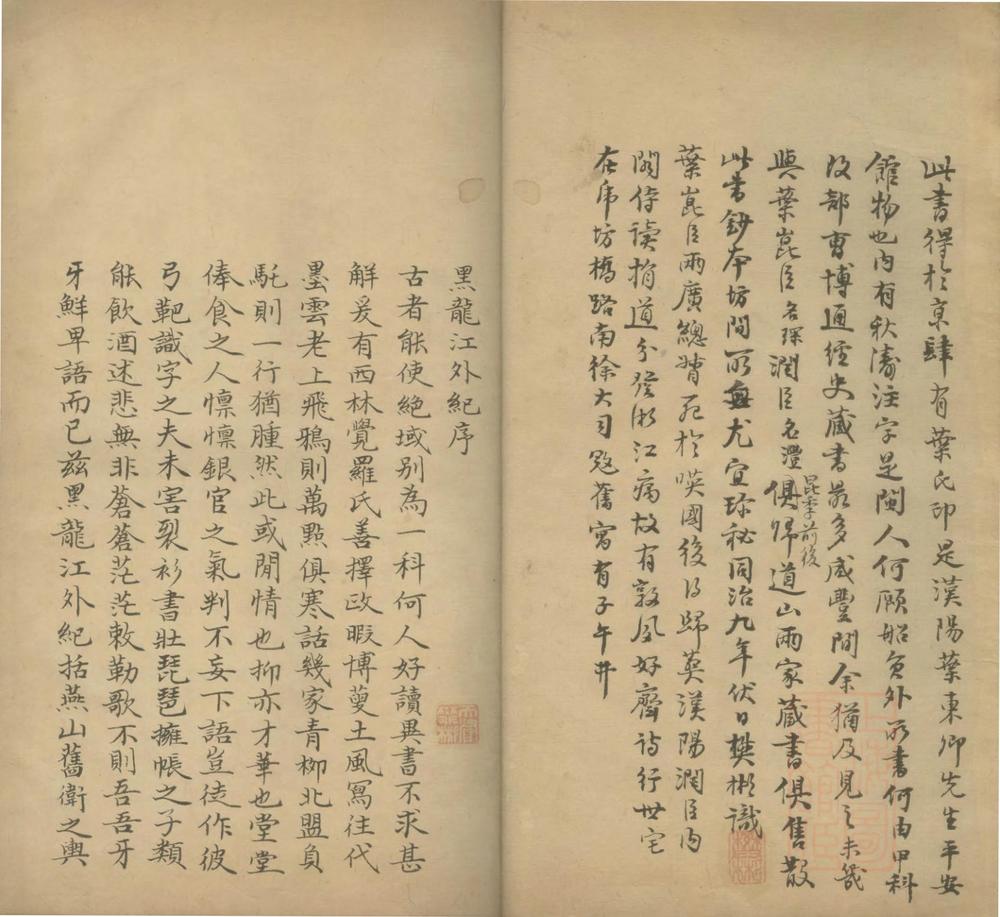 此書得於京肆有葉氏印是漢陽葉東卿先生平安
館物也內有秋濤注字是閩人何願船員外所書何由甲科
改部曹博通經史藏書最多咸豐間余猶及見之未幾
與葉崑臣名琛潤臣名灃昆季前後俱歸道山兩家藏書俱售散
此書鈔本坊間所無尤宜珍秘同治九年伏日樊彬識
葉崑臣兩廣總督死於嘆國後得歸葬漢陽潤臣內
閣侍讀捐道分發浙江病故有敦夙好齋詩行世宅
在虎坊橋路南徐大司寇舊寓有子午井
黑龍江外紀序
古者能使絕域別為一科何人好讀異書不求甚
解爰有西林覺羅氏善擇政暇博蒐土風寫往代
墨雲老上飛鴉則萬點俱寒話幾家青柳北盟負
馲則一行猶腫然此或閒情也抑亦才華也堂堂
俸食之人懍懍銀官之氣判不妄下語豈徒作彼
弓靶識字之夫未害裂衫書壯琵琶擁帳之子類
能飲酒述悲無非蒼蒼茫茫敕勒歌不則吾吾牙
牙鮮卑語而已茲黑龍江外紀括燕山舊衛之輿